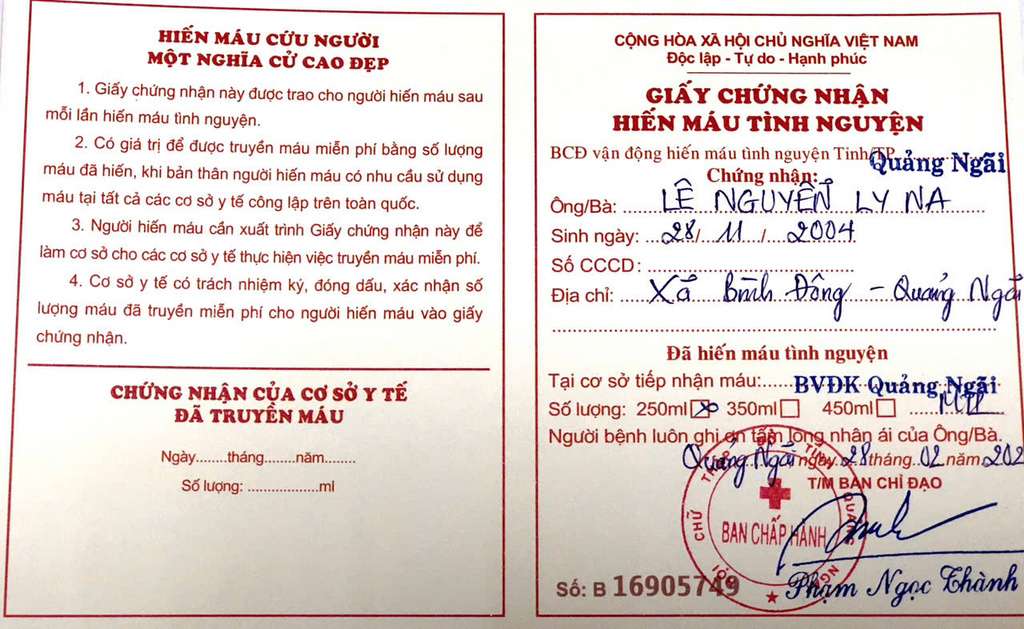 HIẾN MÁU CỨU NGƯỜI
MỘT NGHĨA CỬ CAO ĐẸP
1. Giấy chứng nhận này được trao cho người hiến máu sau
mỗi lần hiến máu tình nguyện.
2. Có giá trị để được truyền máu miễn phí bằng số lượng
máu đã hiến, khi bản thân người hiến máu có nhu cầu sử dụng
máu tại tất cả các cơ sở y tế công lập trên toàn quốc.
3. Người hiến máu cần xuất trình Giấy chứng nhận này để
làm cơ sở cho các cơ sở y tế thực hiện việc truyền máu miễn phí.
4. Cơ sở y tế có trách nhiệm ký, đóng dấu, xác nhận số
lượng máu đã truyền miễn phí cho người hiến máu vào giấy
chứng nhận.
CHỨNG NHẬN CỦA CƠ SỞ Y TẾ
ĐÃ TRUYỀN MÁU
Ngày........tháng........năm........
Số lượng: ..................ml
CỘNG HÒA XÃ HỘI CHỦ NGHĨA VIỆT NAM
Độc lập - Tự do - Hạnh phúc
GIẤY CHỨNG NHẬN
HIẾN MÁU TÌNH NGUYỆN
BCĐ vận động hiến máu tình nguyện Tỉnh/TP Quảng Ngãi
Chứng nhận:
Ông/Bà: LÊ NGUYỄN LY NA
Sinh ngày: 28/11/2004
Số CCCD:
Địa chỉ: Xã Bình Đông - Quảng Ngãi
Đã hiến máu tình nguyện
Tại cơ sở tiếp nhận máu: BVĐK Quảng Ngãi
Số lượng: 250ml 350ml 450ml
Người bệnh luôn ghi ơn tấm lòng nhân ái của Ông/Bà.
Quảng Ngãi ngày 28 tháng 02 năm 202
T/M BAN CHỈ ĐẠO
CHỮ THẬP ĐỎ TỈNH QUẢNG NGÃI
BAN CHẤP HÀNH
Số: B 16905749
Phạm Ngọc Thành